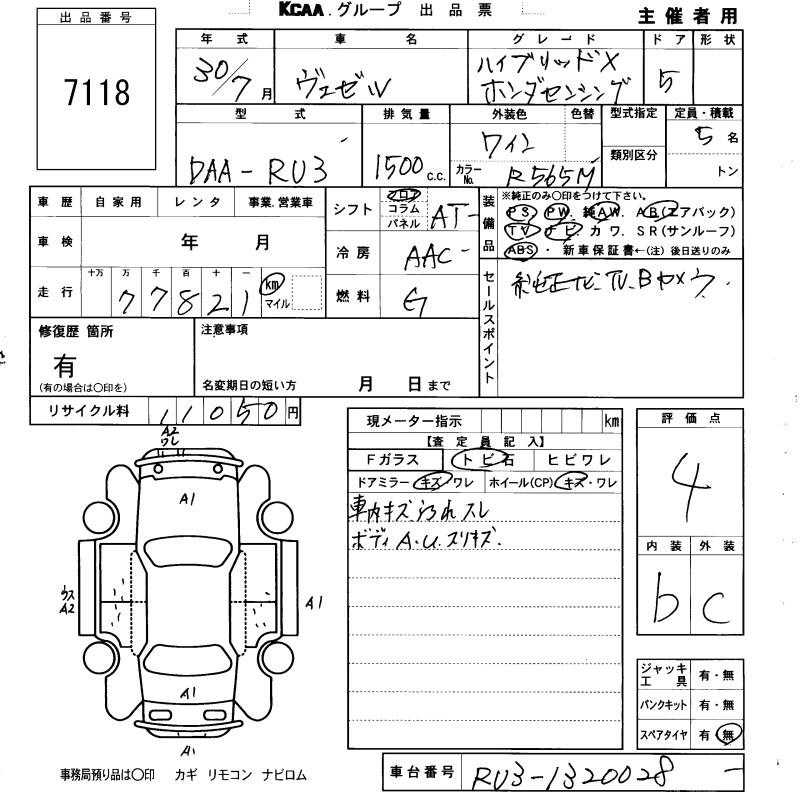 KCAA.グループ 出品票
主催者用
出品番号
7118
年式 車名 グレード ドア 形状
30/7月 ヴェゼル ハイブリッドX ホンダセンシング 5
型式 排気量 外装色 色替 型式指定 定員・積載
DAA-RU3 1500c.c. ワイン 類別区分 5名
カラーNo. R565M トン
車歴 自家用 レンタ 事業.営業車
シフト フロア コラム パネル AT
装備品 ※純正のみ○印をつけて下さい。
PS PW 純AW. AB(エアバック)
TV ナビ. カワ. SR(サンルーフ)
ABS・新車保証書←(注)後日送りのみ
車検 年 月
冷房 AAC
走行 十万 万 千 百 十 一
77821 km マイル
燃料 G
セールスポイント 純正ナビ.TV.Bカメラ
修復歴 箇所
有
(有の場合は○印を)
注意事項
名変期日の短い方 月 日まで
リサイクル料 11050円
現メーター指示 km
【査定員記入】
Fガラス トビ石 ヒビワレ
ドアミラー キズ・ワレ ホイール(CP) キズ・ワレ
車内キズ汚れスレ
ボディA.U.スリキズ.
評価点
4
内装 外装
b c
A2
ワレ
A1
ウス
A2
A1
A1
A1
ジャッキ工具 有・無
パンクキット 有・無
スペアタイヤ 有 無
事務局預り品は○印 カギ リモコン ナビロム
車台番号 RU3-1320028